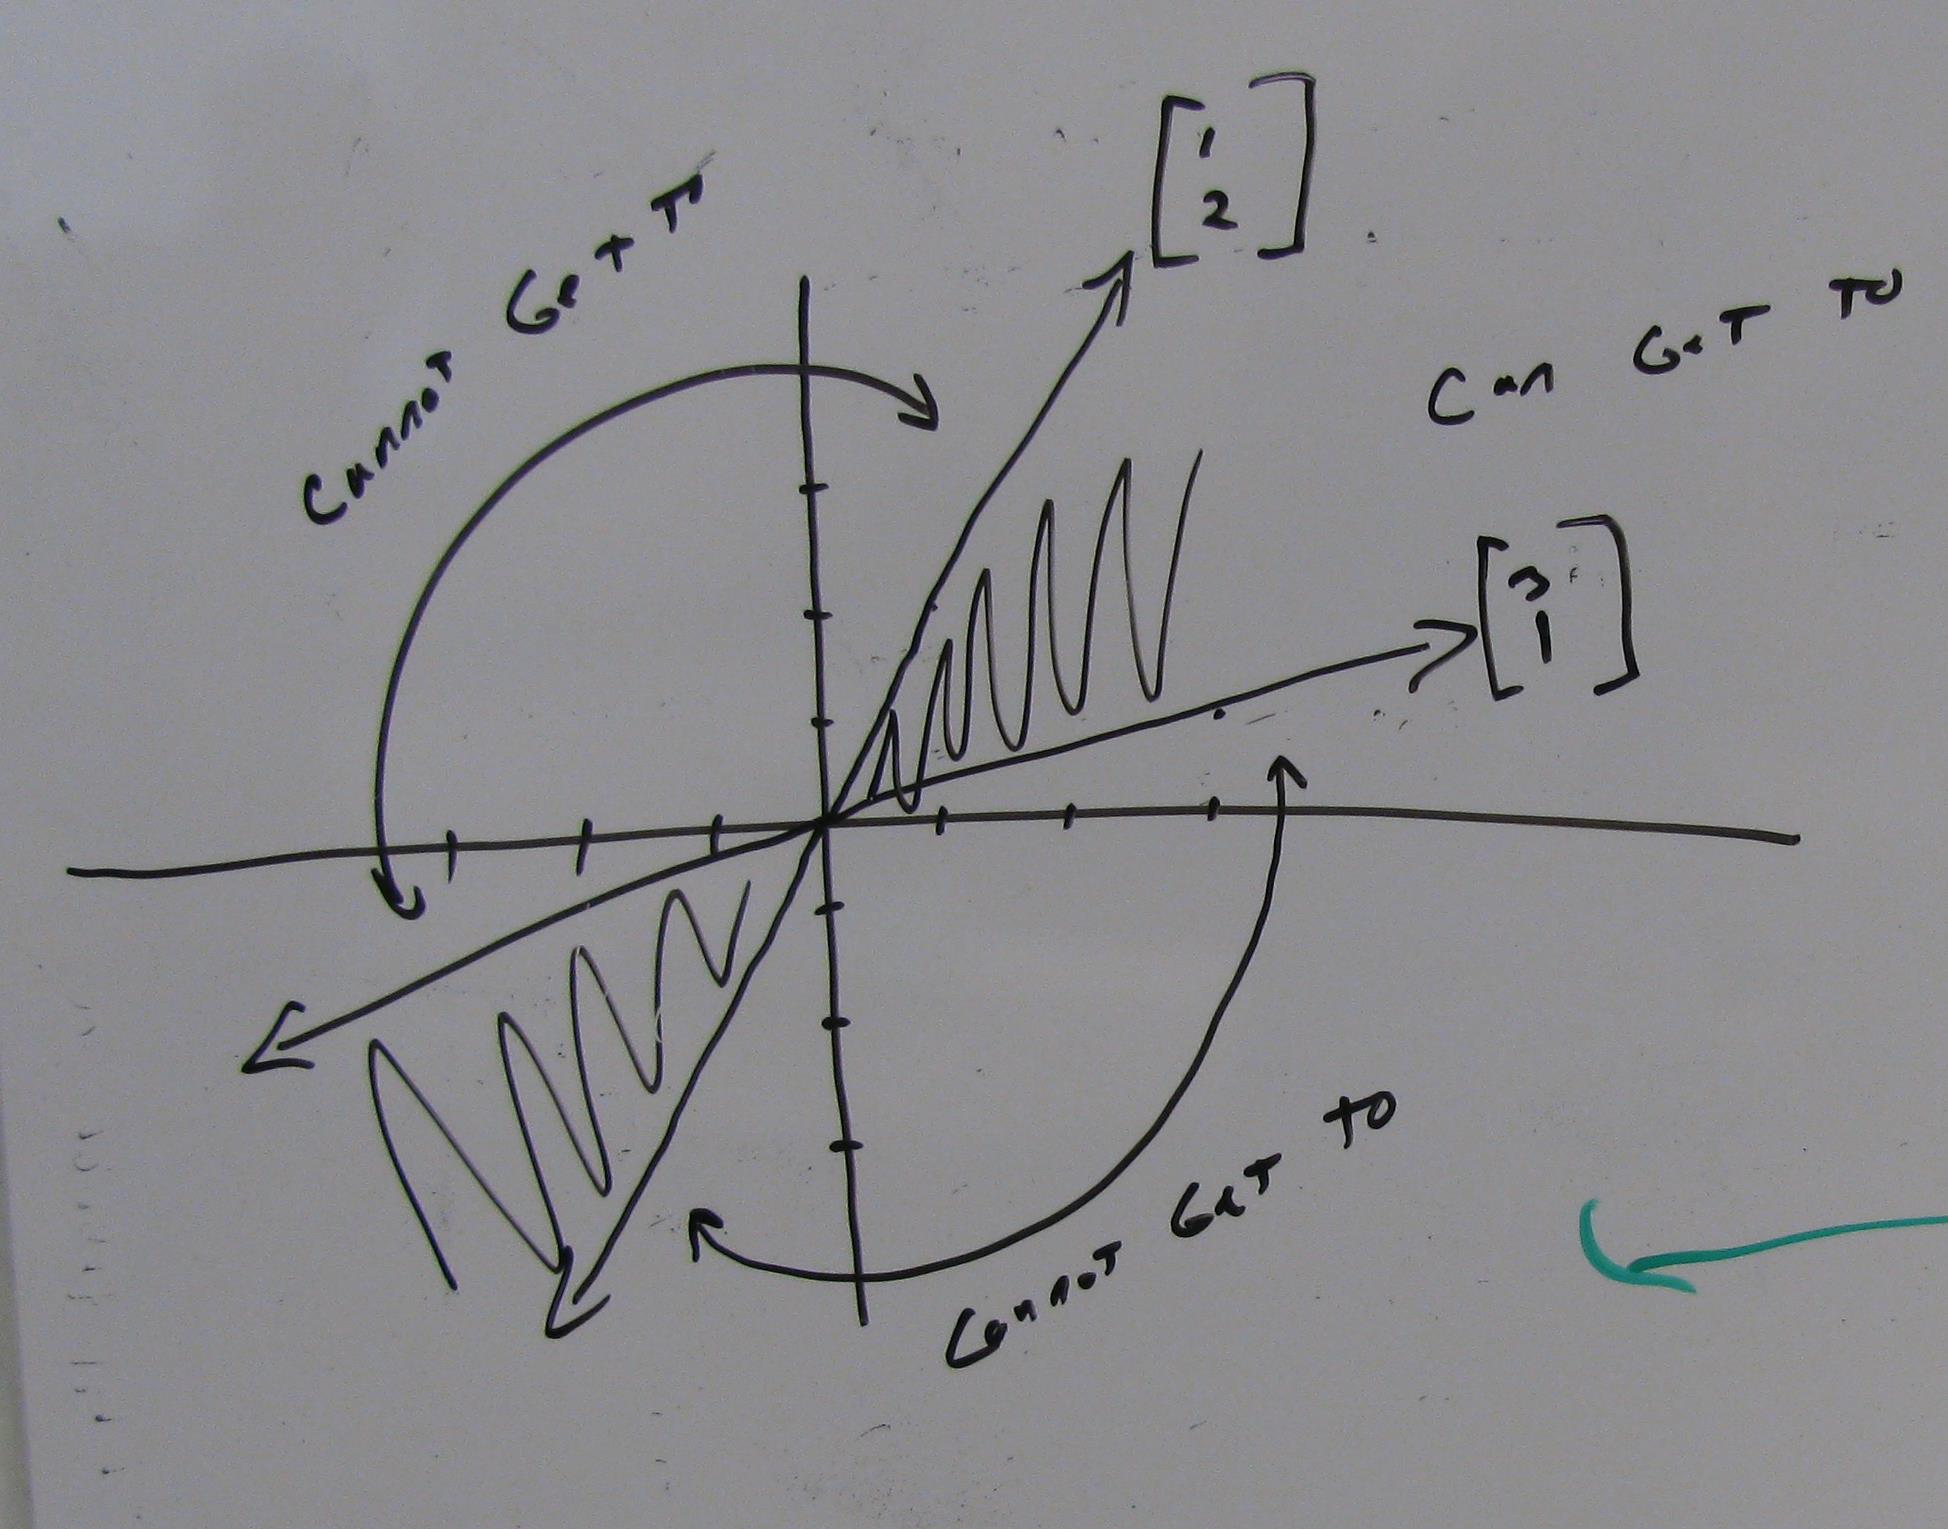 [1
2]
Cannot Get To
Can Get To
[3
1]
Cannot Get to